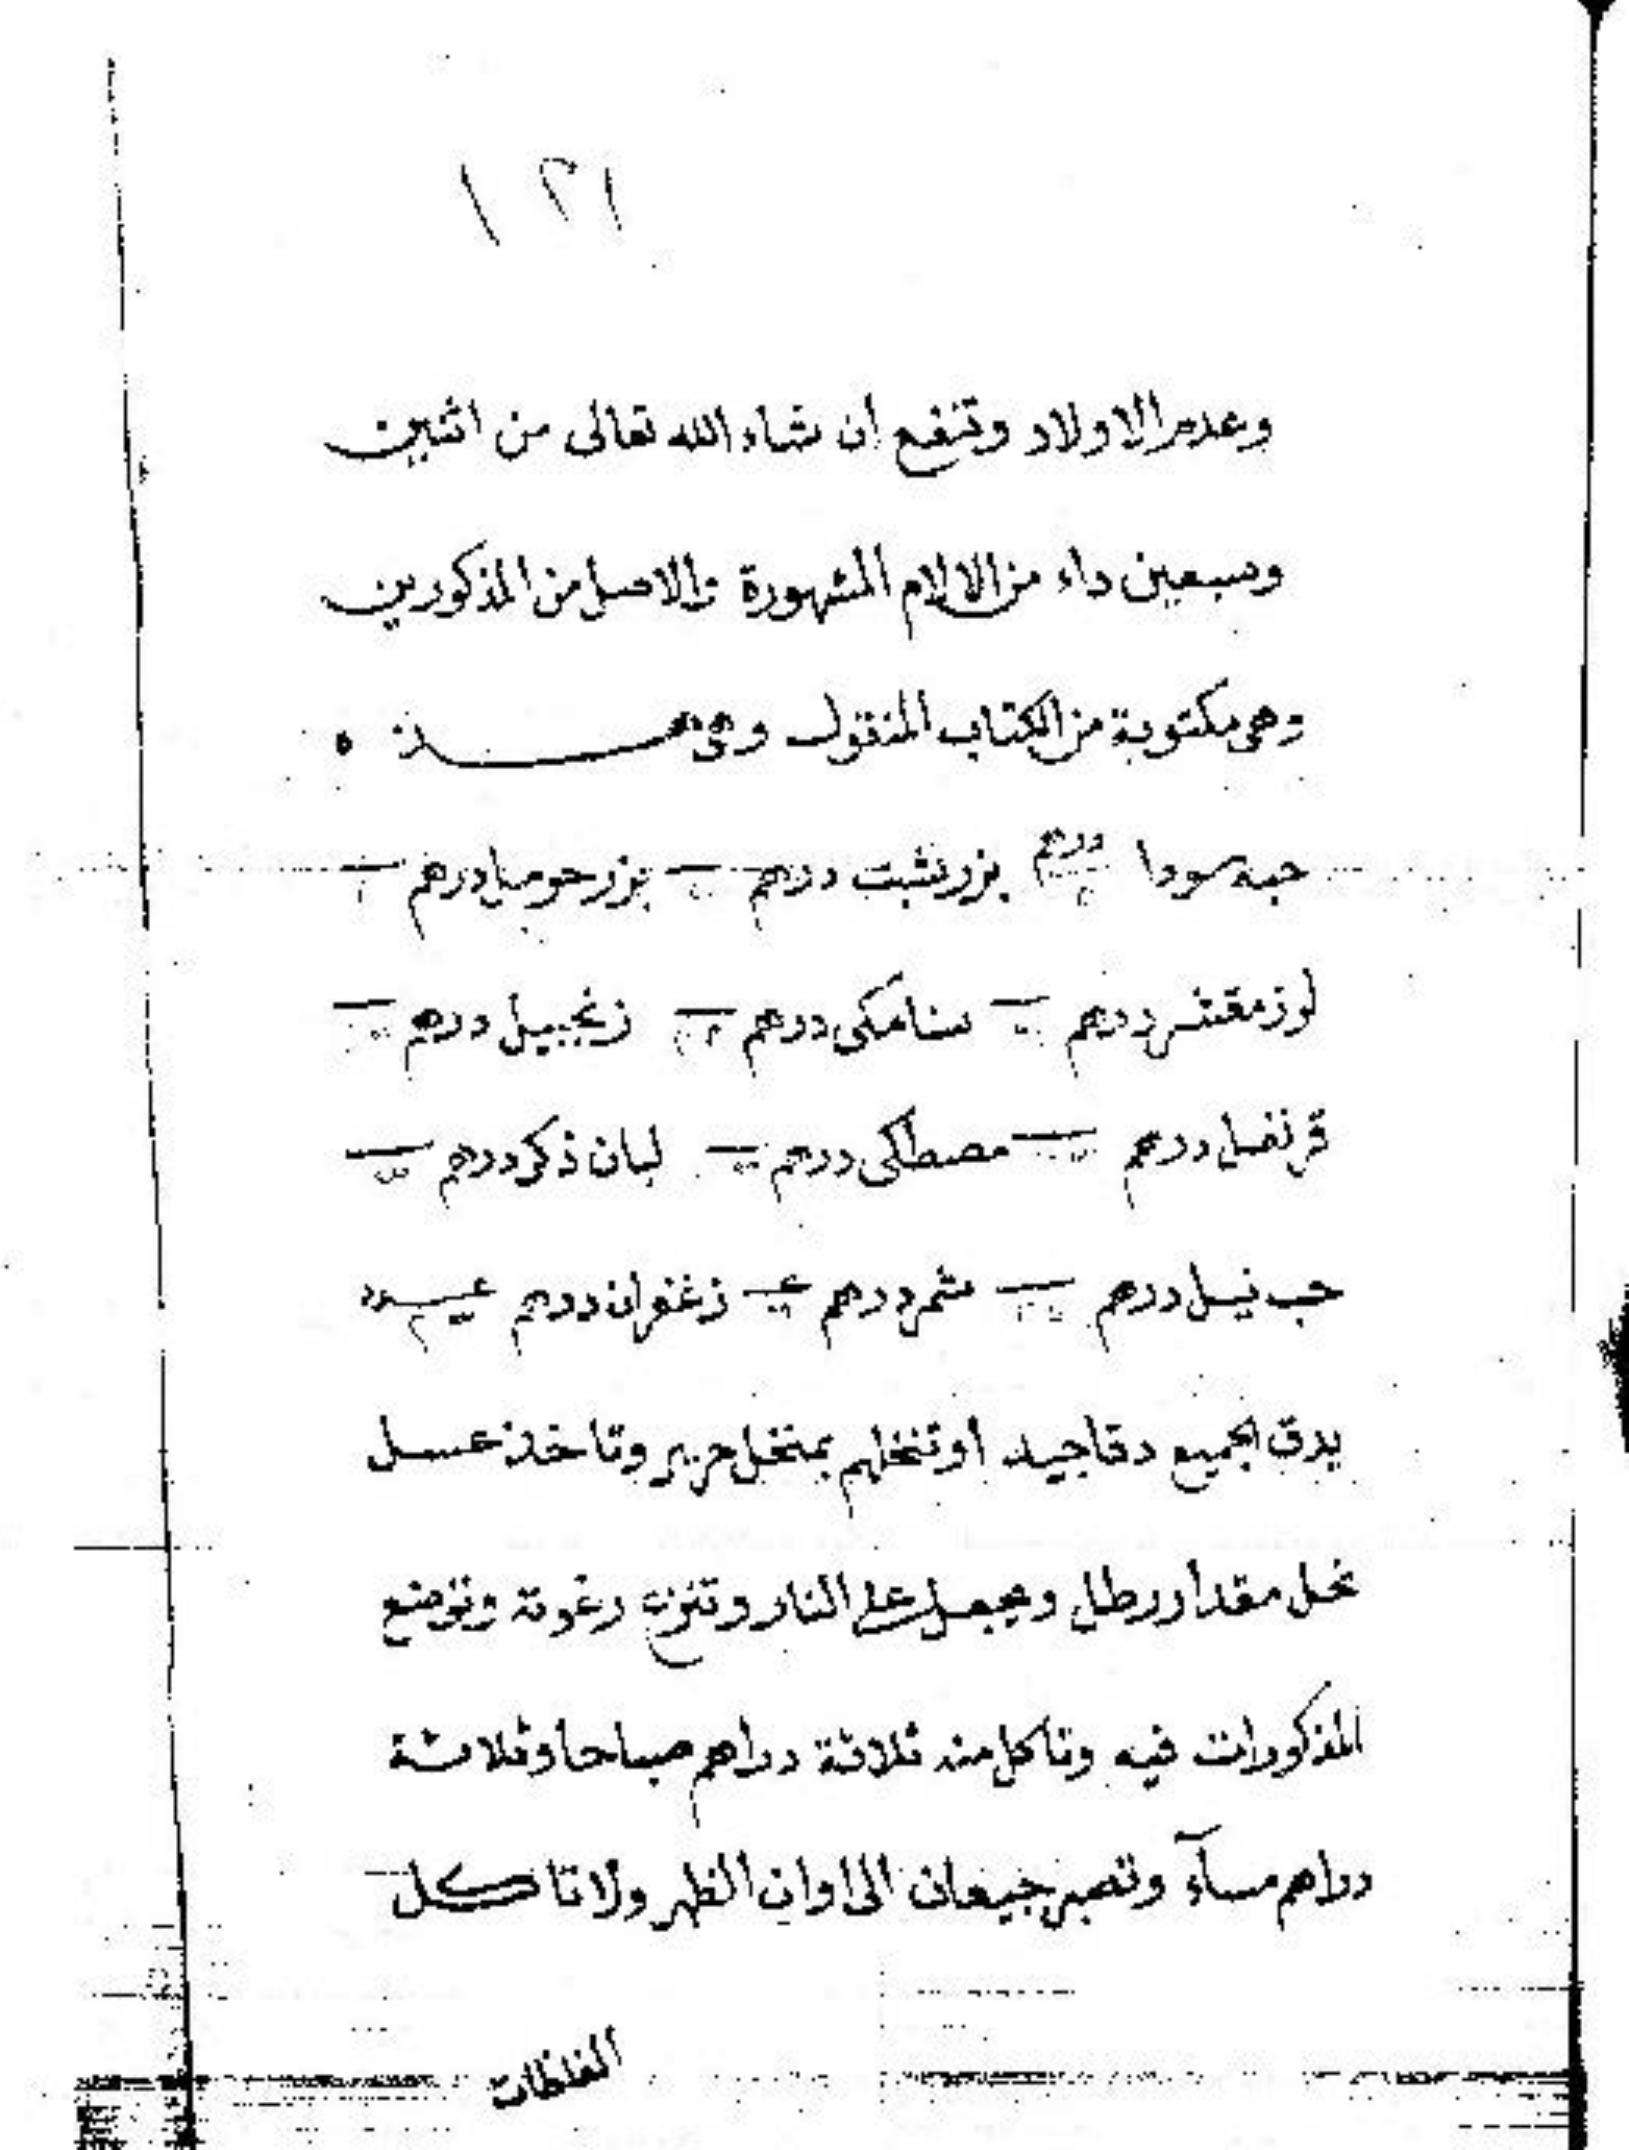 ١٢١
وعدم الاولاد وتنفع ان شاء الله تعالى من اثنين
وسبعين داء من الالام المشهورة والاصل من المذكورين
وهى مكتوبة من الكتاب المنقول وهى هـــذه
حبه سودا درهم بزر شبت درهم بزر حومل درهم
لوز مقشر درهم سنامكى درهم زنجبيل درهم
قرنفل درهم مصطكى درهم لبان ذكر درهم
حب نيل درهم شمر درهم زعفران درهم
يدق الجميع دقا جيد او تنخلهم بمنخل حرير وتاخذ عسل
نحل مقدار رطل ويجعل على النار وتنزع رغوته وتوضع
المذكورات فيه وتاكل منه ثلاثة دراهم صباحا وثلاثة
دراهم مسآء وتصبر جيعان الى اوان الظهر ولا تاكل
الغلظات